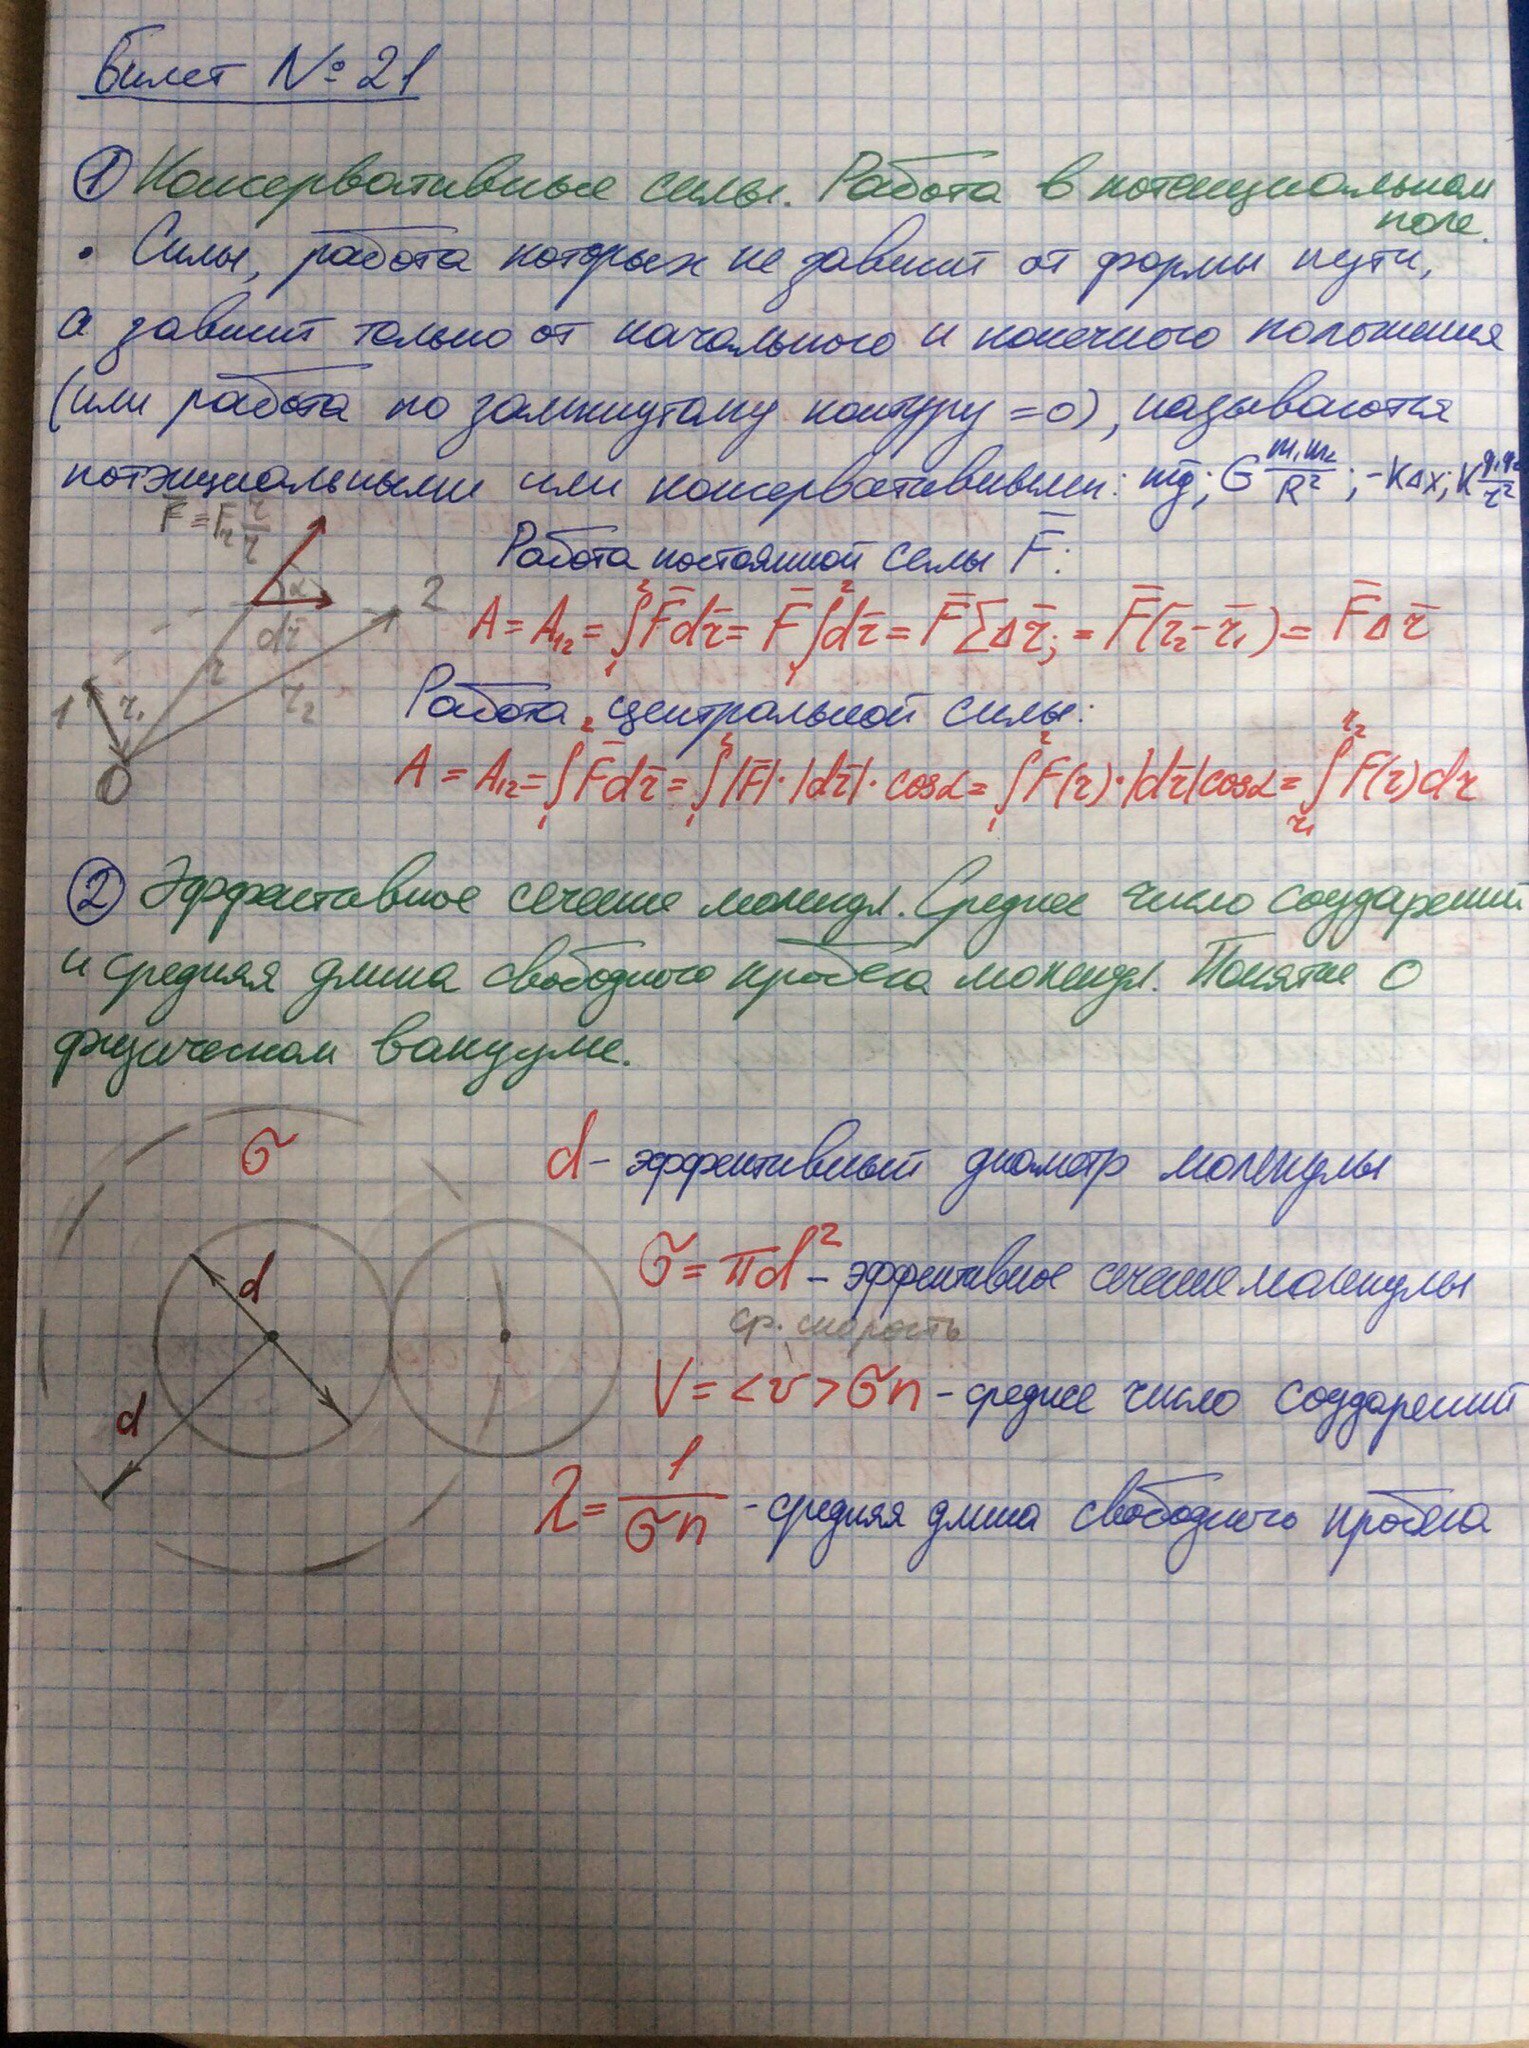 Билет № 21
① Консервативные силы. Работа в потенциальном
поле.
• Силы, работа которых не зависит от формы пути,
а зависит только от начального и конечного положения
(или работа по замкнутому контуру =0), называются
потэнциальными или консервативными: mg; G m₁m₂/R²; -kΔx; k q₁q₂/r²
F̅ = Fᵣ r̅/r
Работа постоянной силы F̅:
A = A₁₂ = ∫₁² F̅dr̅ = F̅ ∫₁² dr̅ = F̅ΣΔr̅ⱼ = F̅(r̅₂-r̅₁) = F̅Δr̅
α
2
dr̅
r
1
r₁
r₂
O
Работа центральной силы:
A = A₁₂ = ∫₁² F̅dr̅ = ∫₁² |F̅|·|dr̅|·cosα = ∫₁² F(r)·|dr̅|cosα = ∫ᵣ₁ʳ² F(r)dr
② Эффективное сечение молекул. Среднее число соударений
и средняя длина свободного пробега молекул. Понятие о
физическом вакууме.
σ
d
d
d – эффективный диаметр молекулы
σ = πd² – эффективное сечение молекулы
ср. скорость
ν = <v>σn – среднее число соударений
λ = 1/σn - средняя длина свободного пробега